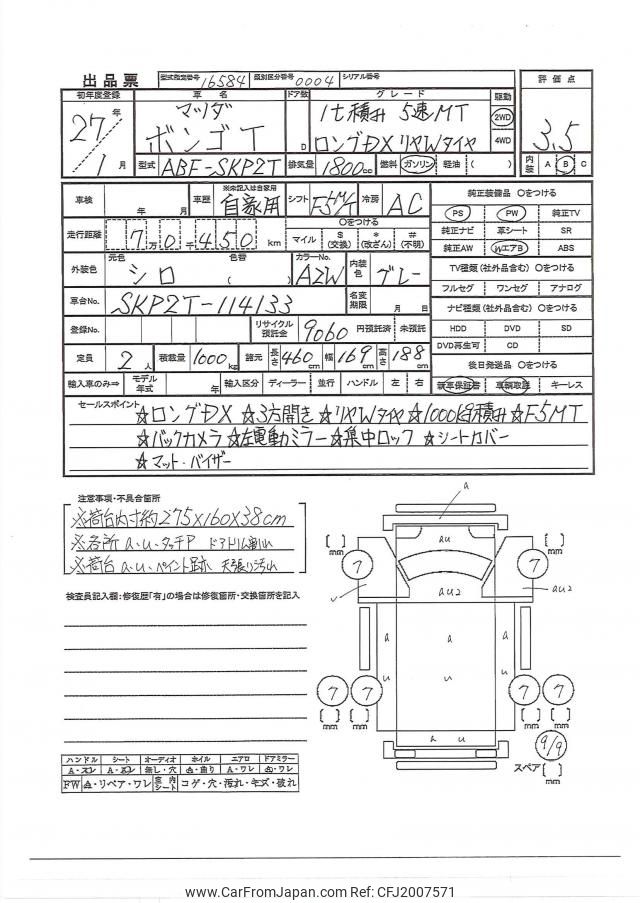 出品票 型式指定番号 16584 類別区分番号 0004 シリアル番号
初年度登録 車名 ドア数 グレード 駆動 評価点
27年/1月 マツダ ボンゴT D 1t積み 5速MT 2WD 4WD 3.5
ロングDX リヤWタイヤ
型式 ABF-SKP2T 排気量 1800cc 燃料 ガソリン・軽油・( ) 内装 A B C
車検 年 月 車歴 ※未記入は自家用 自家用 シフト F5MT 冷房 AC
走行距離 7万0千450km 〇をつける マイル $(交換) *(改ざん) #(不明)
外装色 元色 シロ 色替 ( ) カラーNo. A2W 内装色 グレー
車台No. SKP2T-114133 名変期限 月 日
登録No. リサイクル預託金 9060 円預託済 未預託
定員 2人 積載量 1000kg 諸元 長さ460cm 幅169cm 高さ188cm
輸入車のみ⇒ モデル年式 年 輸入区分 ディーラー 並行 ハンドル 左 右
純正装備品 〇をつける
PS PW 純正TV
純正ナビ 革シート SR
純正AW WエアB ABS
TV種類(社外品含む) 〇をつける
フルセグ ワンセグ アナログ
ナビ種類(社外品含む) 〇をつける
HDD DVD SD
DVD再生可 CD
後日発送品 〇をつける
新車保証書 車輌取説 キーレス
セールスポイント
☆ロングDX ☆3方開き ☆リヤWタイヤ ☆1000kg積み ☆F5MT
☆バックカメラ ☆左電動ミラー ☆集中ロック ☆シートカバー
☆マット・バイザー
注意事項・不具合箇所
※荷台内寸約275×160×38cm
※各所 a.u.タッチP ドアドリム割れ
※荷台 a.u.ペイント跡 天張り汚れ
検査員記入欄:修復歴「有」の場合は修復箇所・交換箇所を記入
a
au
au2
au2
7 7
mm mm
a a a
u u u
7 7 7 7
mm mm mm mm
a u
9/9
スペア mm
ハンドル シート オーディオ ホイル エアロ ドアミラー
A・スレ A・スレ 無し・穴 A・曲り A・ワレ A・ワレ
FW A・リペア・ワレ 室内シート コゲ・穴・汚れ・キズ・破れ
www.CarFromJapan.com Ref: CFJ2007571